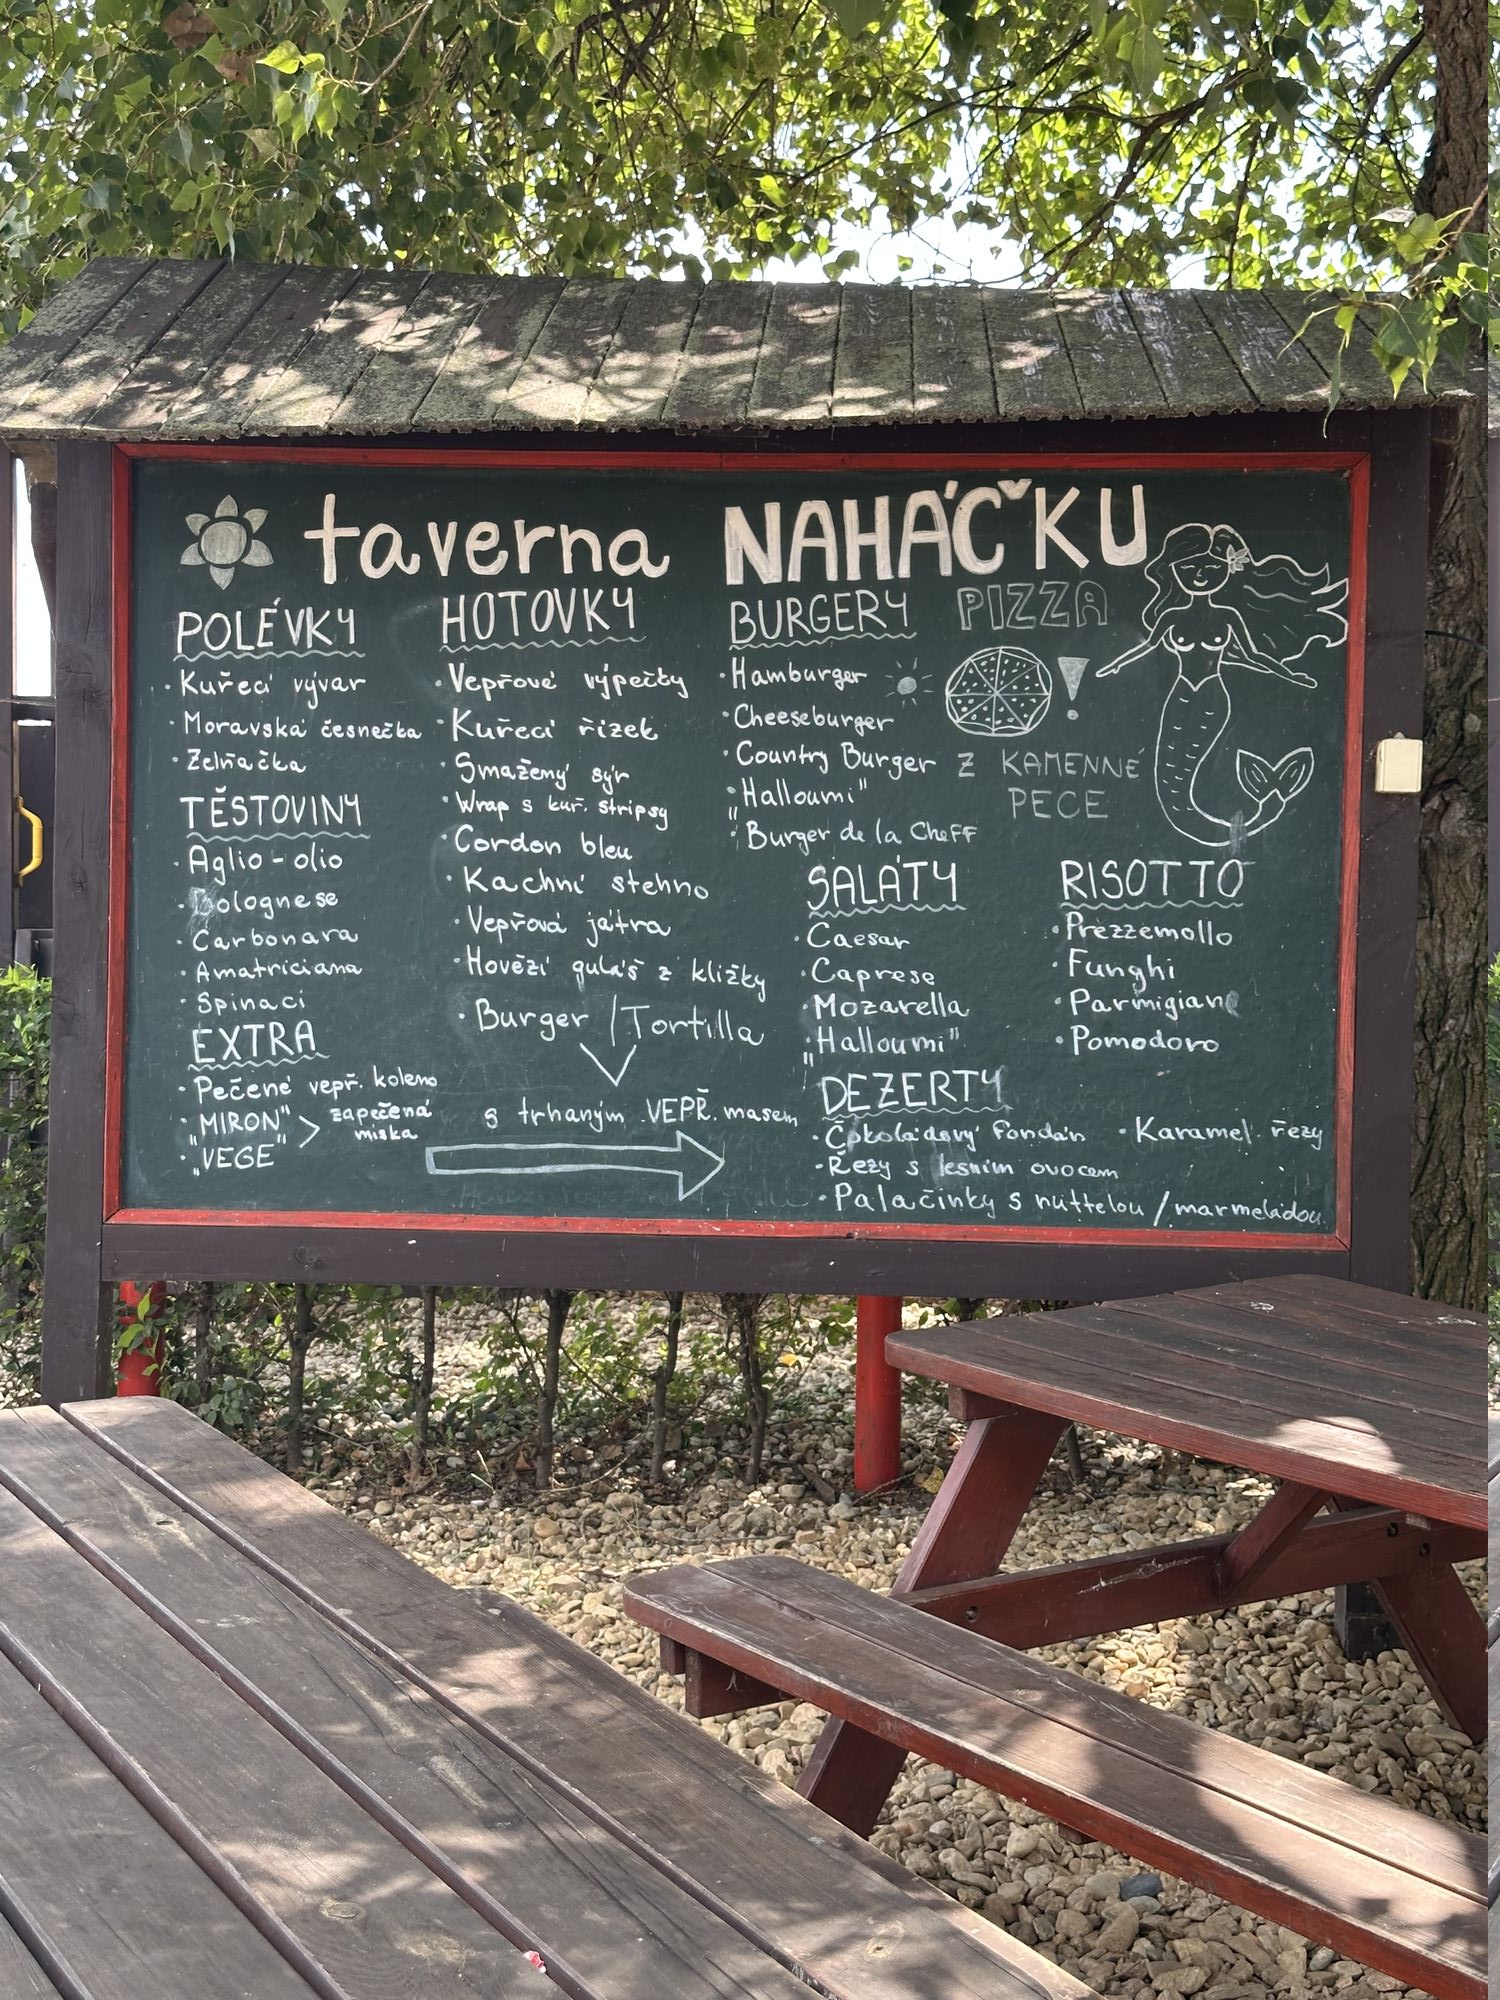 taverna NAHÁČKU
POLÉVKY
· Kuřecí vývar
· Moravská česnečka
· Zelňačka
TĚSTOVINY
· Aglio-olio
· Bolognese
· Carbonara
· Amatriciana
· Spinaci
EXTRA
· Pečené vepř. koleno
· „MIRON"
· „VEGE"
> zapečená
miska
HOTOVKY
· Vepřové výpečky
· Kuřecí řízek
· Smažený sýr
· Wrap s kuř. stripsy
· Cordon bleu
· Kachní stehno
· Vepřová játra
· Hovězí guláš z kližky
· Burger / Tortilla
s trhaným VEPŘ. masem
BURGERY
· Hamburger
· Cheeseburger
· Country Burger
· „Halloumi"
· Burger de la Cheff
PIZZA
!
Z KAMENNÉ
PECE
SALÁTY
· Caesar
· Caprese
· Mozarella
· „Halloumi"
RISOTTO
· Prezzemollo
· Funghi
· Parmigiane
· Pomodoro
DEZERTY
· Čokoládový fondán · Karamel. řezy
· Řezy s lesním ovocem
· Palačinky s nuttelou / marmeládou